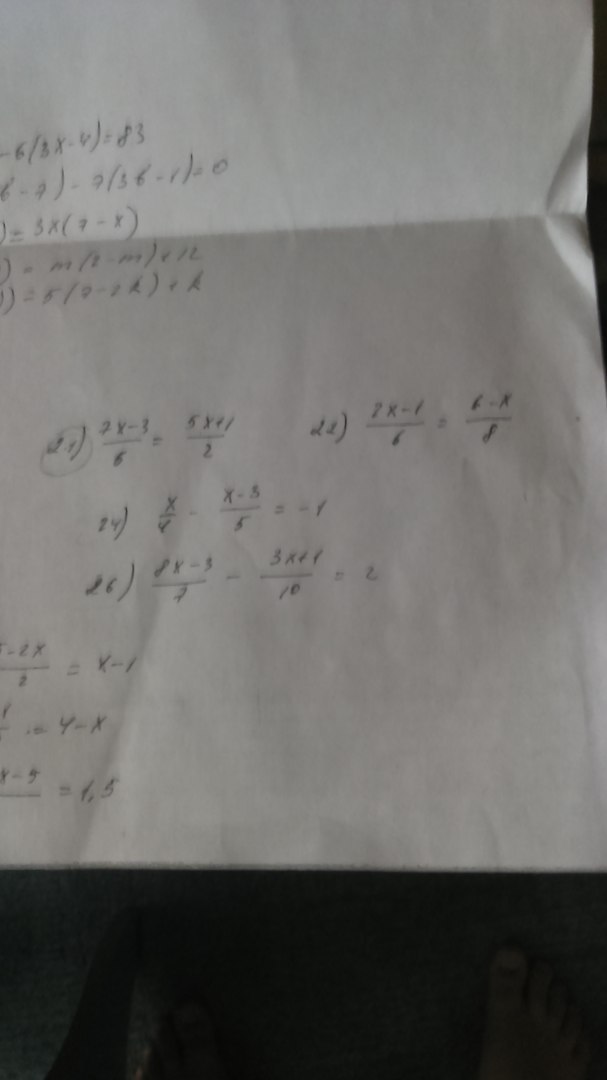 -6(3x-4)=83
6-7)-7(36-1)=0
)=3x(7-x)
)=m(2-m)+12
))=5(7-2k)+k
21) 7x-3/6 = 5x+1/2 22) 2x-1/6 = 6-x/8
24) x/4 - x-3/5 = -1
26) 8x-3/7 - 3x+1/10 = 2
-2x/2 = x-1
= 4-x
x-5 = 1,5